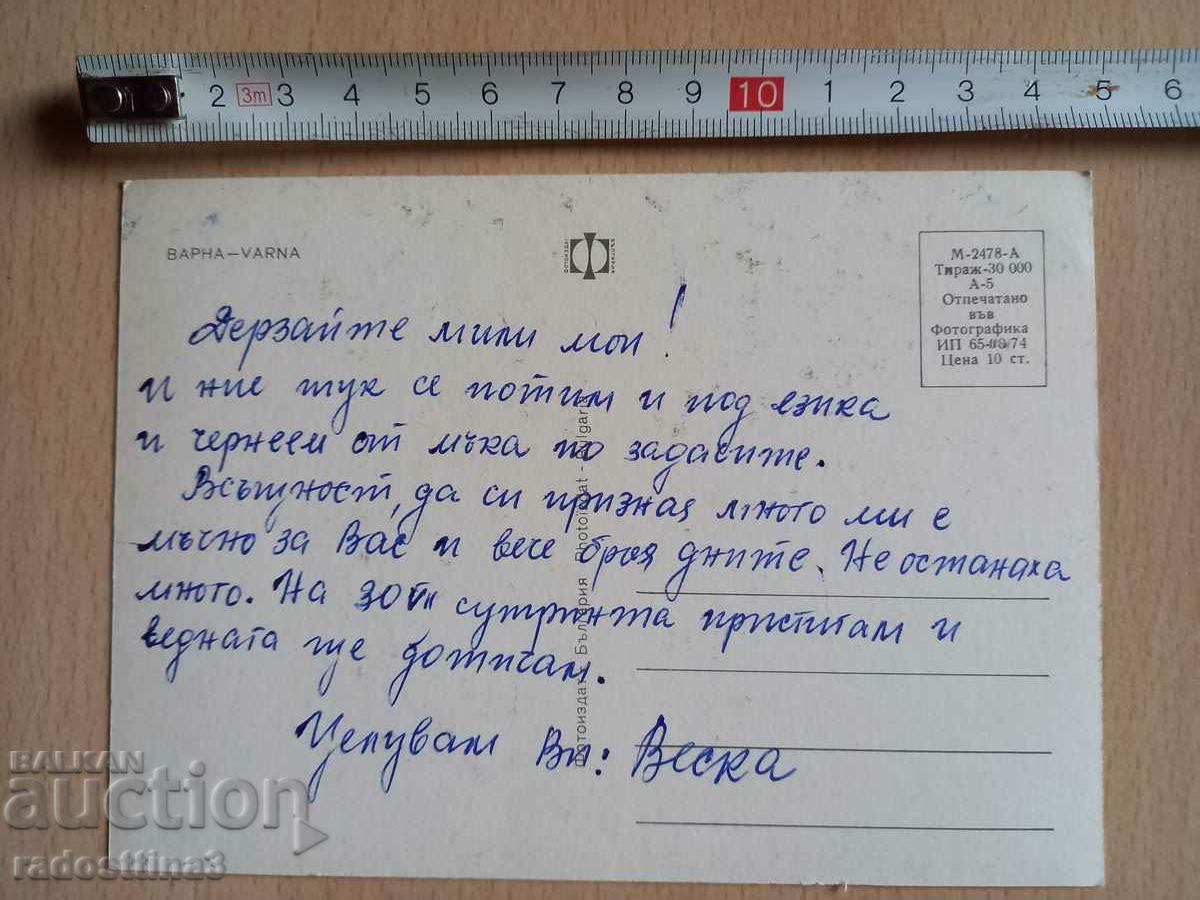 2 3m 3 4 5 6 7 8 9 10 1 2 3 4 5 6
ВАРНА – VARNA
М-2478-А
Тираж-30 000
А-5
Отпечатано
във
Фотографика
ИП 65-08/74
Цена 10 ст.
Дерзайте мили мои!
и ние тук се потим и под езика
и чернеем от мъка по задачите.
Всъщност, да си призная много ми е
мъчно за Вас и вече броя дните. Не останаха
много. На 30ти сутринта пристигам и
веднага ще дотичам.
Целувам Ви: Веска
Фотоиздат България Photoizdat - Bulgaria
BALKAN
auction
radosttina3